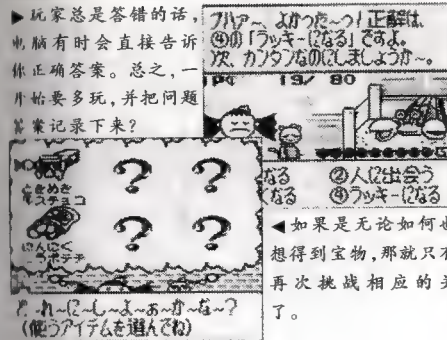 ▶玩家总是答错的话,
电脑有时会直接告诉
你正确答案。总之,一
开始要多玩,并把问题
答案记录下来?
フハァ〜、よかった〜っ!正解は、
④の「ラッキーになる」ですよ。
次、カンタンなのにしましょうか〜。
19/ 80
なる ②人に出会う
なる ④ラッキーになる
ときめき
にんにく
ラポテチ
? ? ? ?
れ〜に〜し〜よ〜お〜か〜な〜?
(使うアイテムを選んでね)
◀如果是无论如何也
想得到宝物,那就只有
再次挑战相应的关
了。